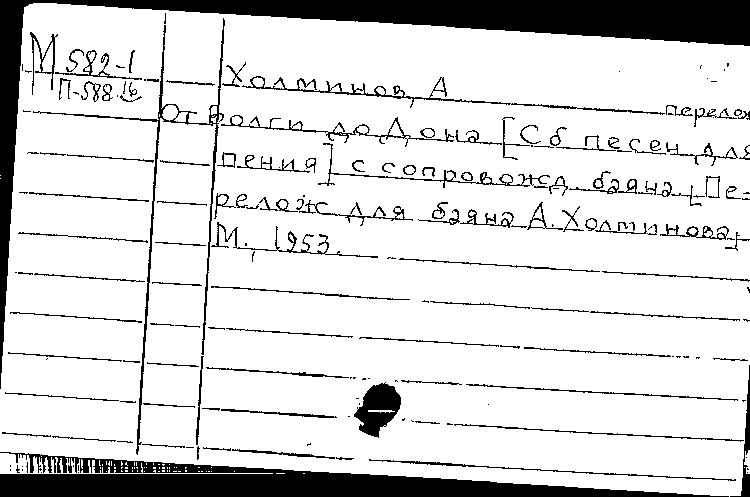 М 582-1
П-588 16
Холминов, А
перелож
От Волги до Дона [Сб песен для
пения] с сопровожд. баяна [Пе-
релож для баяна А. Холминова]
М., 1953.